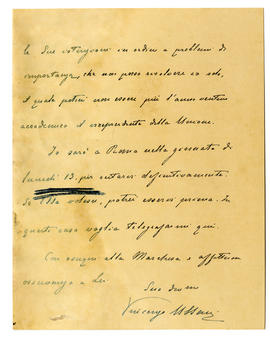 le Sue istruzioni in ordine a problemi di
importanza, che non posso risolvere io solo,
il quale potrei non essere più l'anno venturo
accademico il rappresentante della Unione.
Io sarò a Roma nella giornata di
lunedì 13 per restarvi definitivamente.
Se Ella volesse, potrei esservi prima. In
questo caso voglia telegrafarmi qui.
Con ossequi alla Marchesa e affettuosi
ossequi a Lei
Suo dev.mo
Vincenzo Ussani